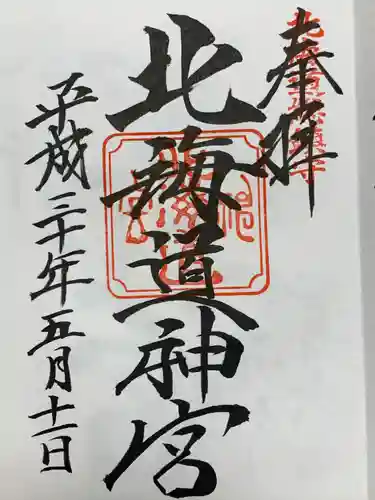 奉拝
北海道神宮
平成三十年五月十一日